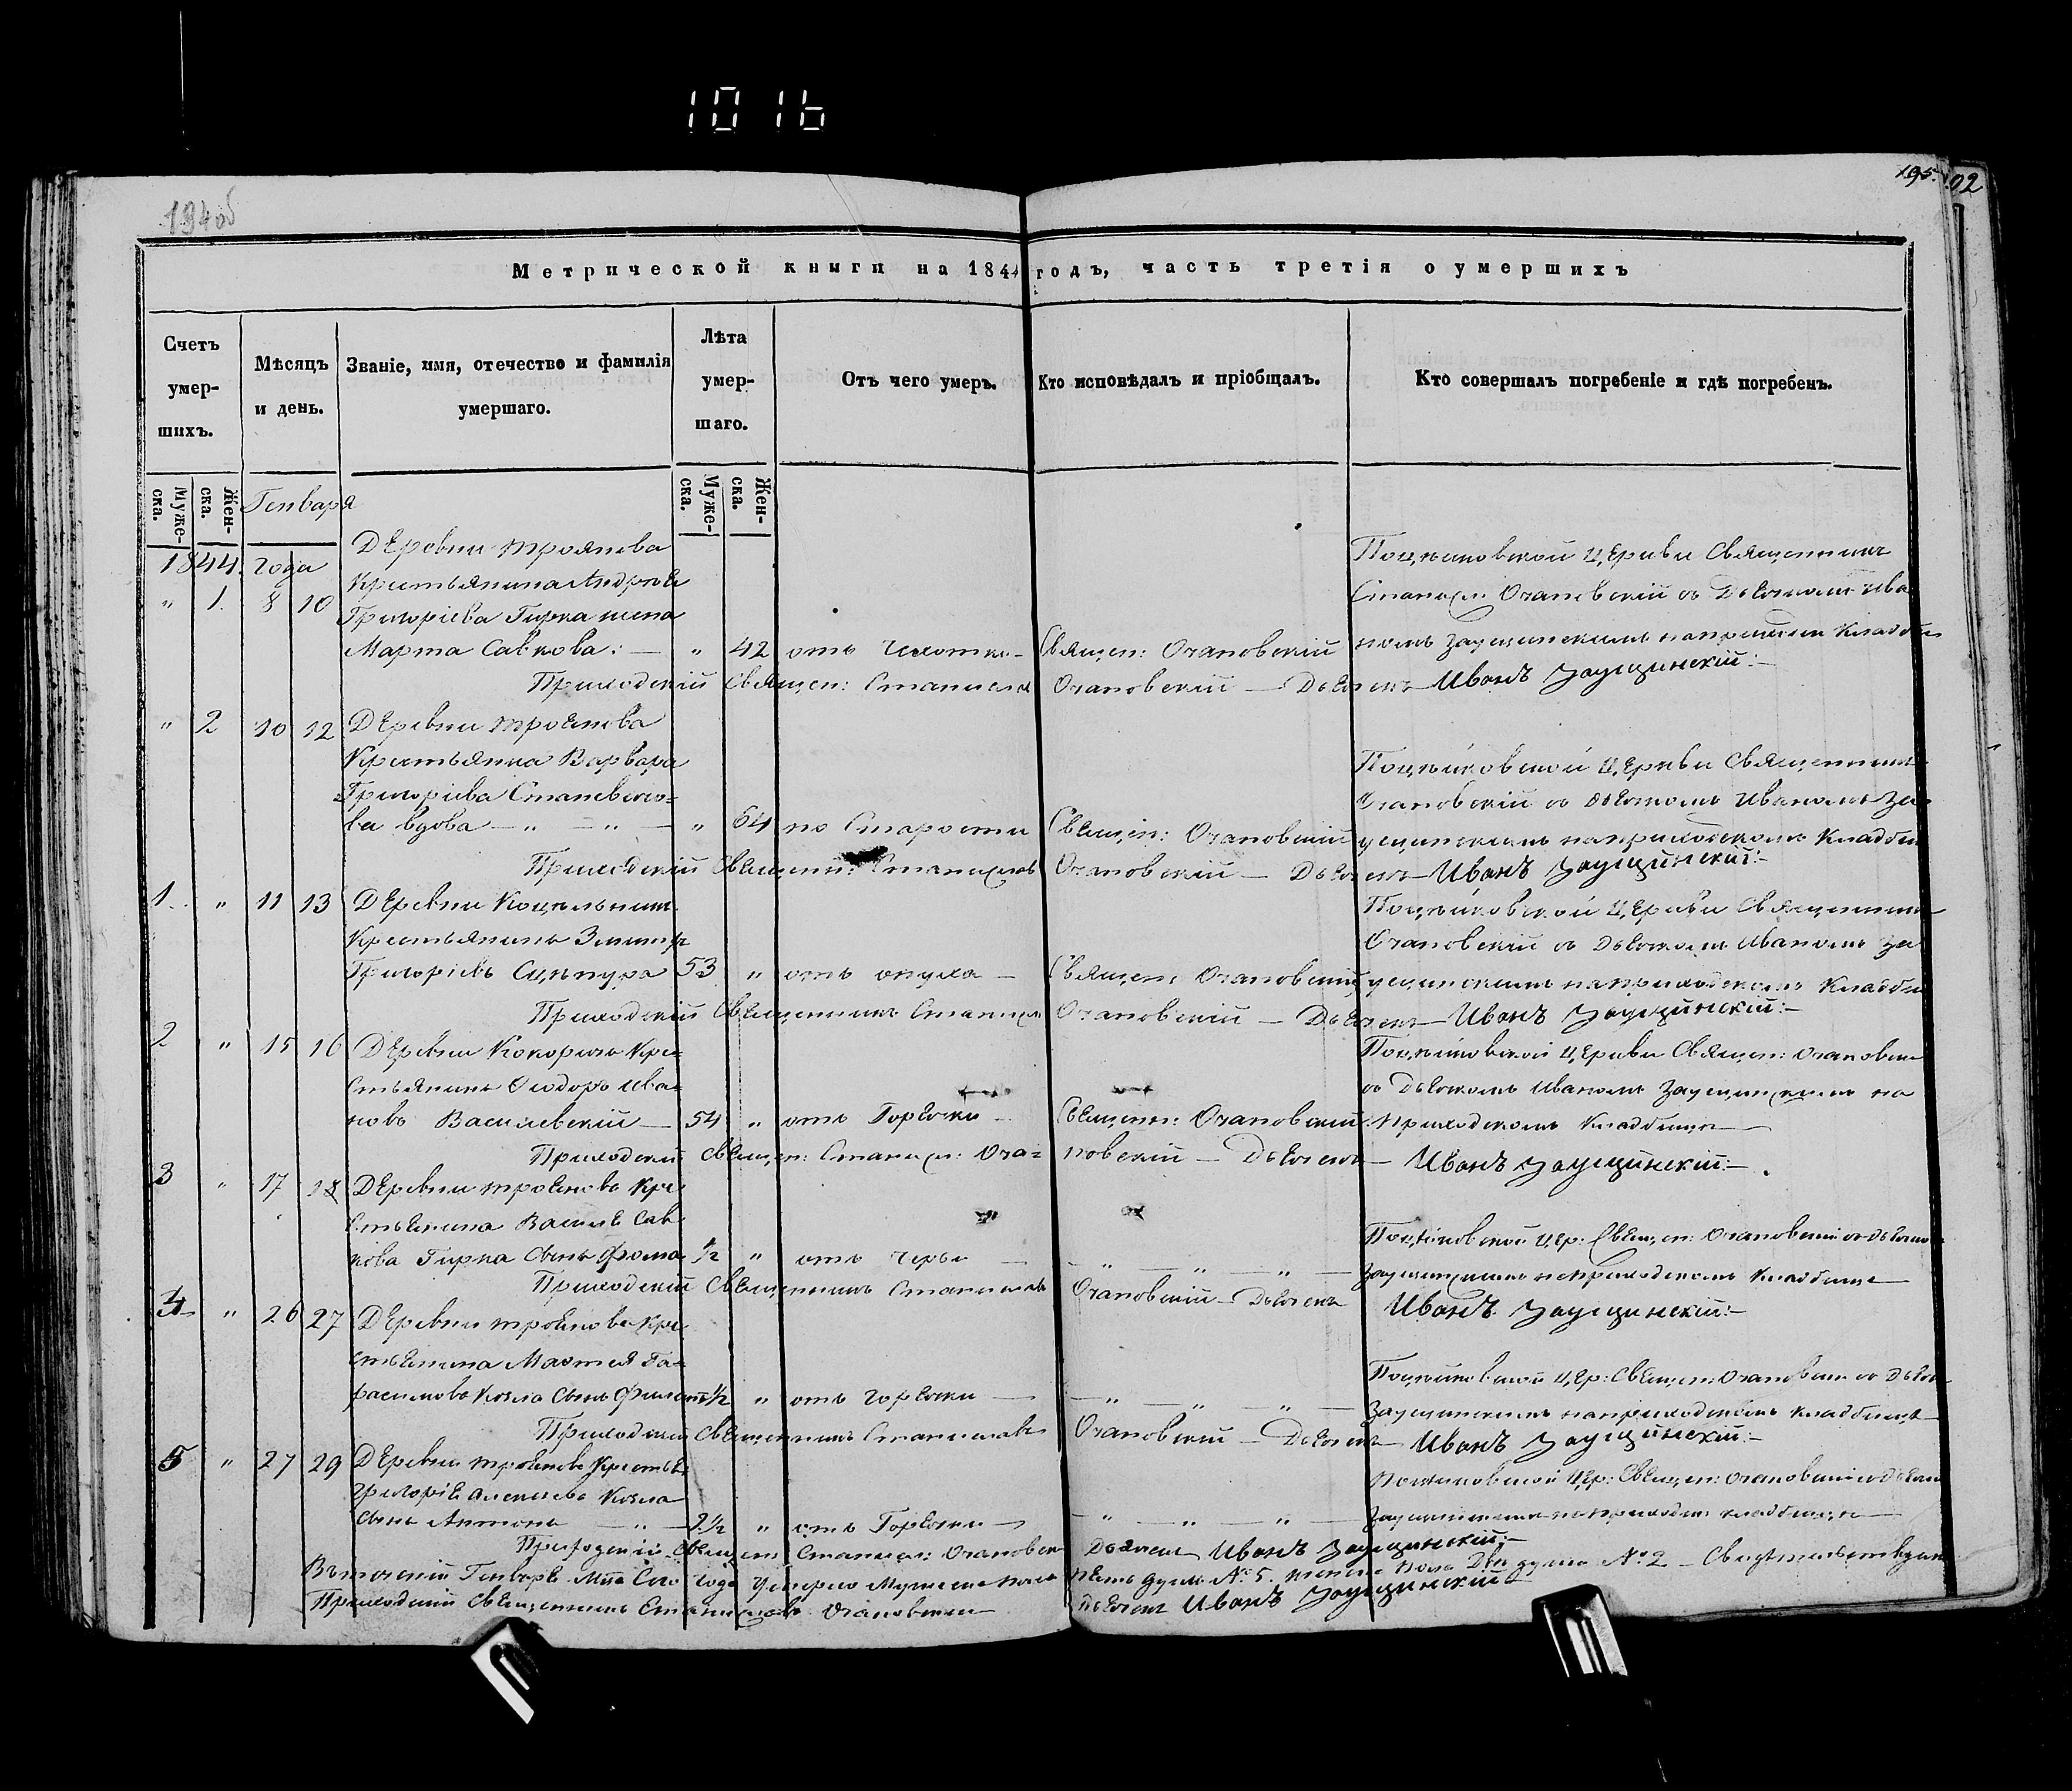 1016
194об
195. 102
Метрической книги на 1844 годъ, часть третія о умершихъ
Счетъ умер-шихъ.
Мѣсяцъ и день.
Званіе, имя, отечество и фамилія умершаго.
Лѣта умер-шаго.
Отъ чего умеръ.
Кто исповѣдалъ и пріобщалъ.
Кто совершалъ погребеніе и гдѣ погребенъ.
Муже-ска. Жен-ска. Генваря Муже-ска. Жен-ска.
1844. года
Деревни Троянова
Крестьянина Андрея
" 1. 8 10 Григоріева Гирка жена
Марта Савкова: — " 42 отъ Чехотки — Священ: Очановскій
церкви Священникъ
Очановскій съ Дьячкомъ Ива
номъ Заущинскимъ на кладби
Приходскій Священ: Станислав Очановскій — Дьячекъ Иванъ Заущинскій:—
" 2 10 12 Деревни Троянова
Крестьянка Варвара
Григоріева
ва вдова — " — " — " 64 по Старости Священ: Очановскій
церкви Священникъ
Очановскій съ Дьячкомъ Иваномъ За
ущинскимъ на приходскомъ Кладби
Приходскій Священ: Станиславъ Очановскій — Дьячекъ Иванъ Заущинскій:—
1. " 11 13 Деревни
Крестьянинъ
Григоріевъ 53 " отъ опуха — Священ: Очановскій
церкви Священник
Очановскій съ Дьячкомъ Иваномъ За
ущинскимъ на приходскомъ Кладби
Приходскій Священникъ Станислав Очановскій — Дьячекъ — Иванъ Заущинскій:—
2 " 15 16 Деревни Кре=
стьянинъ Ѳеодоръ Ива=
новъ Василевскій — 54 " отъ Горячки — Священ: Очановскій
церкви Священ: Очановски
съ Дьячкомъ Иваномъ Заущинскимъ на
приходскомъ Кладбище
Приходскій Священ: Станисл: Оча= новскій — Дьячекъ — Иванъ Заущинскій:—
3 " 17 18 Деревни Троянова Кре
стьянина Василя Сав
кова Гирка Сынъ Фома ½ " отъ — " — " — " —
цер: Священ: Очановскій съ Дьячко
Заущинскимъ на приходскомъ Кладбище
Приходскій Священникъ Станиславъ Очановскій — Дьячекъ Иванъ Заущинскій:—
4 " 26 27 Деревни Троянова Кре
стьянина Матѳея Га=
расимова Козла Сынъ ½ " отъ горячки — " — " — " —
цер: Священ: Очановски съ Дьяч
Заущинскимъ на приходскомъ кладбище
Приходскій Священникъ Станиславъ Очановскій — Дьячекъ — Иванъ Заущинскій:—
5 " 27 29 Деревни Троянова Крестья
Григорія Алексеева Козла
Сынъ Антонъ — " — 2½ " отъ Горячки — " — " — " —
цер: Священ: Очановскій съ Дьячк
Заущинскимъ на приходск кладбище
Приходскій Священ: Станисл: Очановск Дьячекъ Иванъ Заущинскій:—
Въ теченіи Генваря Мца Сего года Умерло Мужеска пола пять душъ № 5. женска пола Двѣ души № 2 — Свидѣтельствуем
Приходскій Священникъ Станиславъ Очановски Дьячекъ Иванъ Заущинскій